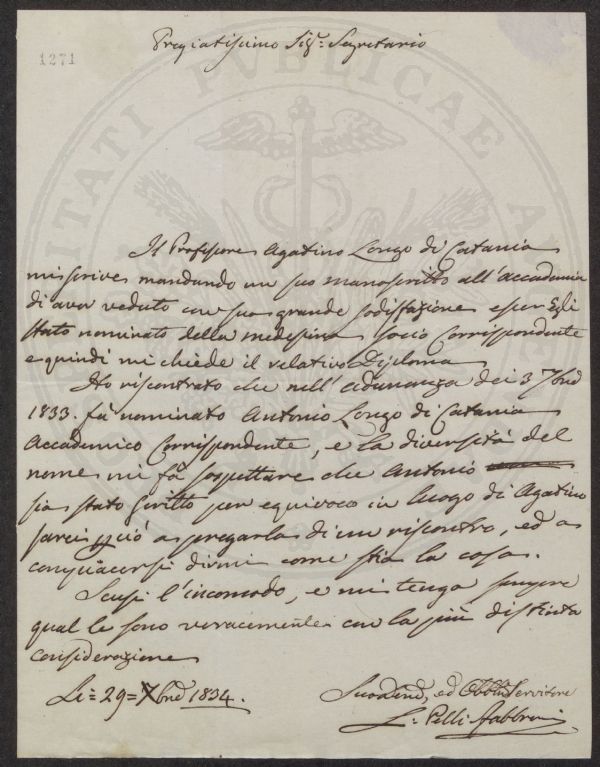 1271
Pregiatissimo Sig.r Segretario
Il Professore Agatino Longo di Catania
mi scrive mandando un suo manoscritto all'accademia
di aver veduto con sua grande sodisfazione esser Egli
stato nominato della medesima socio Corrispondente
e quindi mi chiede il relativo Diploma
Ho riscontrato che nell'adunanza dei 3 7bre
1833. fù nominato Antonio Longo di Catania
Accademico Corrispondente, e la diversità del
nome mi fà sospettare che Antonio
sia stato scritto per equivoco in luogo di Agatino
sarei perciò a pregarla di un riscontro, ed a
compiacersi dirmi come stia la cosa.
Scusi l'incomodo, e mi tenga sempre
qual le sono veracemente con la più distinta
considerazione
Li = 29 = Xbre 1834.
Suo ed Obb.mo Servitore
L. Pelli Fabbroni